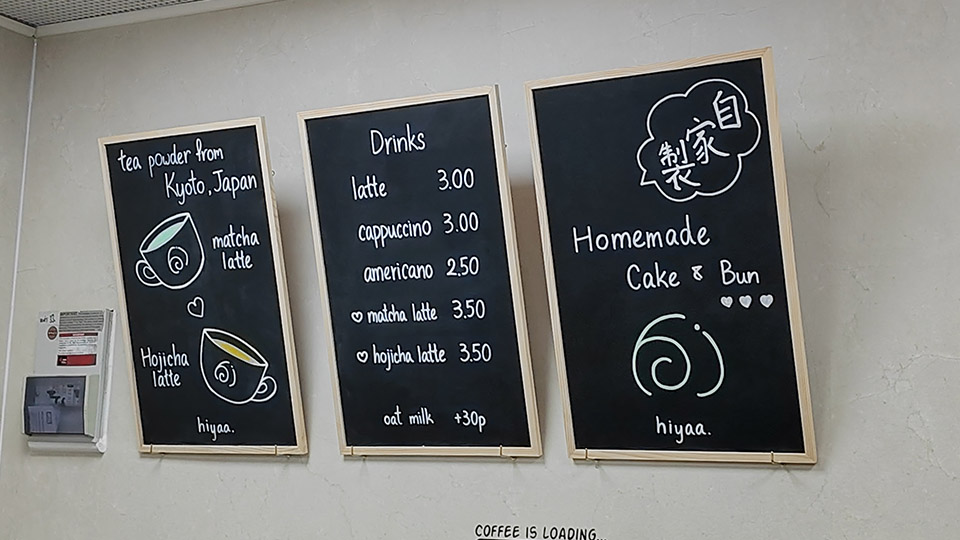 tea powder from
Kyoto, Japan
matcha
latte
Hojicha
latte
hiyaa.
Drinks
latte 3.00
cappuccino 3.00
americano 2.50
♡ matcha latte 3.50
♡ hojicha latte 3.50
oat milk +30p
自家製
Homemade
Cake & Bun
hiyaa.
COFFEE IS LOADING...